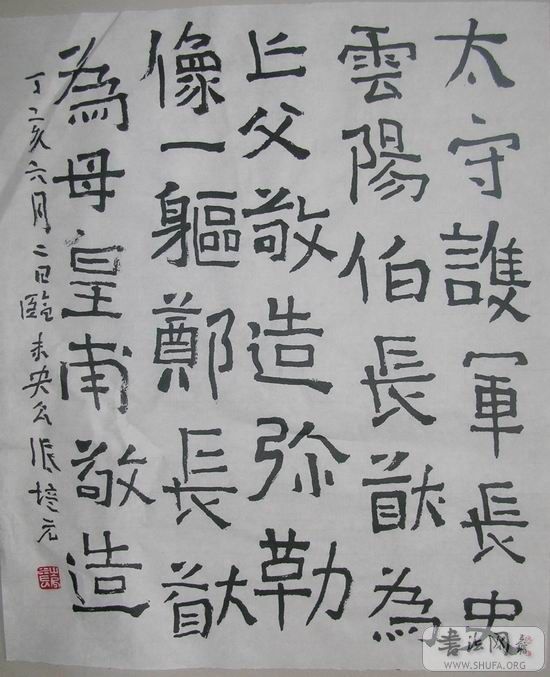 太守護軍長史
雲陽伯長猷為
亡父敬造弥勒
像一軀鄭長猷
為母皇甫敬造
丁亥六月二日臨未央公張培元
书法网
WWW.SHUFA.ORG